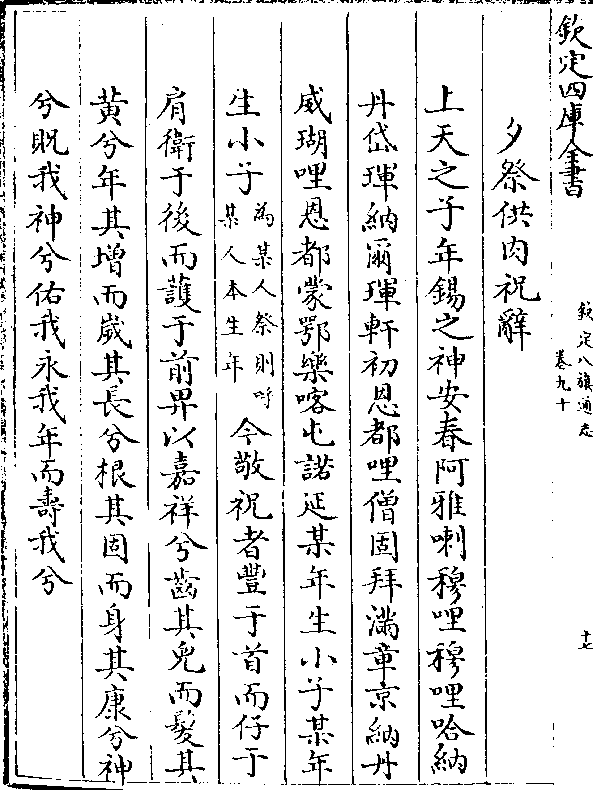 欽定四庫全書
欽定八旗通志
卷九十
十七
夕祭供肉祝辭
上天之子年錫之神安春阿雅喇穆哩穆哩哈納
丹岱琿納爾琿軒初恩都哩僧固拜滿章京納丹
威瑚哩恩都蒙鄂樂喀屯諾延某年生小子某年
生小子為某人祭則呼某人本生年今敬祝者豐于首而仔于
肩衛于後而護于前畀以嘉祥兮齒其兒而髮其
黃兮年其增而歲其長兮根其固而身其康兮神
兮貺我神兮佑我永我年而壽我兮